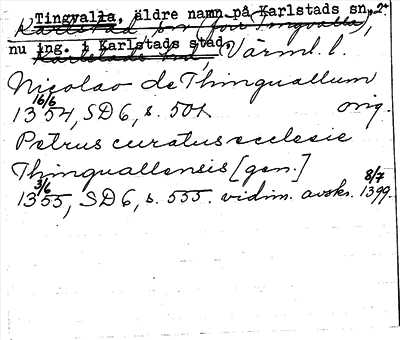 Tingvalla, äldre namn på Karlstads sn, 2
Karlstad, sn (förr Tingvalla),
nu ing. i Karlstads stad, Värml. l.
Karlstads hd,
Nicolao de Thinguallum
16/6
1354, SD 6, s. 501 orig.
Petrus curatus ecclesie
Thinguallensis [gen.]
3/6 8/7
1355, SD 6, s. 555. vidim. avskr. 1399.